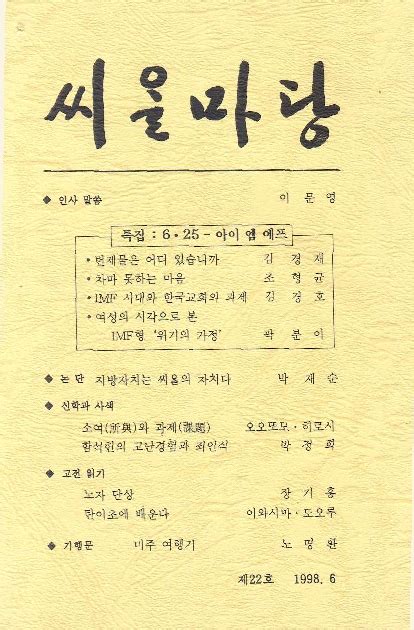 씨울마당
◆ 인사 말씀 이 문 영
특집 : 6·25 - 아이 엠 에프
· 번제물은 어디 있습니까 김 경 재
· 차마 못하는 마음 조 형 균
· IMF 시대와 한국교회의 과제 김 경 호
· 여성의 시각으로 본
IMF형 '위기의 가정' 곽 분 이
◆ 논 단 지방자치는 씨올의 자치다 박 재 순
◆ 신학과 사색
소여(所與)와 과제(課題) 오오또모·히로시
함석헌의 고난경험과 죄인식 박 정 희
◆ 고전 읽기
노자 단상 장 기 홍
탄이초에 배운다 이와시마·도오루
◆ 기행문 미주 여행기 노 명 환
제22호 1998. 6